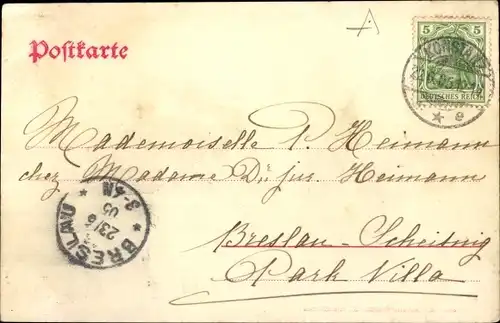 Postkarte
A
5 5
DEUTSCHES REICH
KONSTANZ
* e
Mademoiselle P. Heimann
chez Madame Dr. jur. Heimann
Breslau-Scheitnig
Park Villa
* BRESLAU *
23/6
05
3-4N